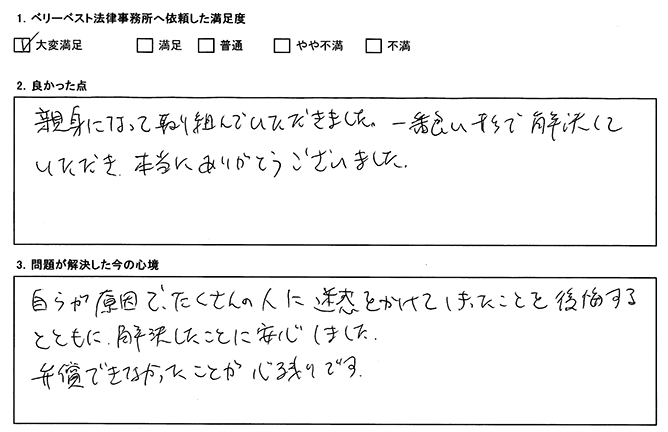 1. ベリーベスト法律事務所へ依頼した満足度
大変満足 満足 普通 やや不満 不満
2. 良かった点
親身になって取り組んでいただきました。一番良い形で解決して
いただき、本当にありがとうございました。
3. 問題が解決した今の心境
自らが原因で、たくさんの人に迷惑をかけてしまったことを後悔する
とともに、解決したことに安心しました。
弁償できなかったことが心残りです。